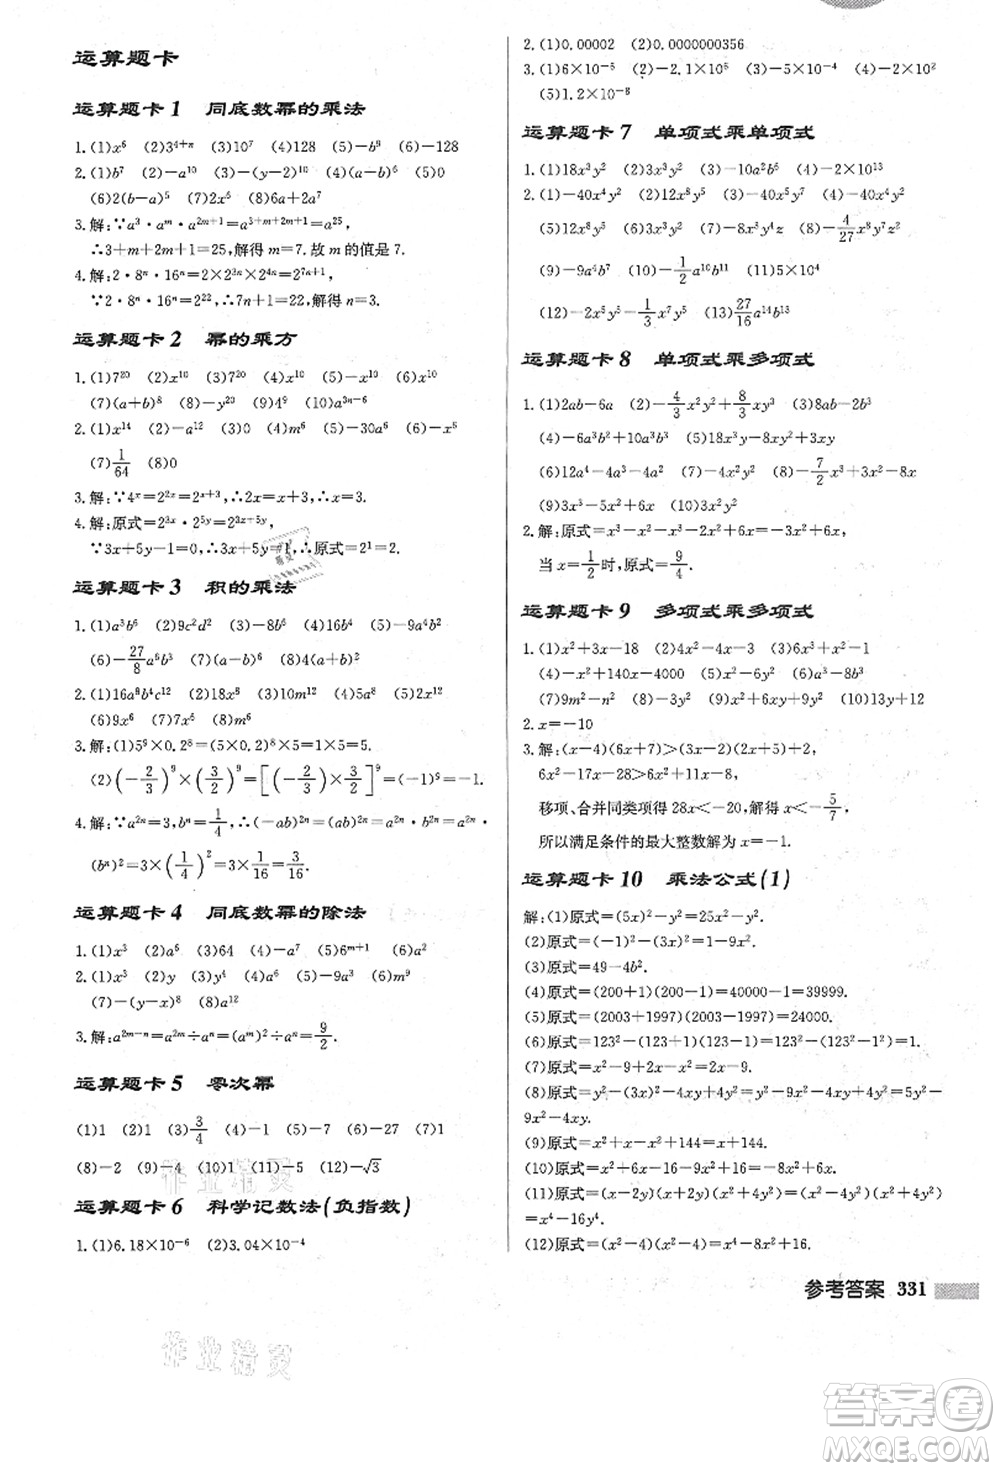 运算题卡
运算题卡1 同底数幂的乘法
1.(1)x⁶ (2)3⁴⁺ⁿ (3)10⁷ (4)128 (5)-b⁹ (6)-128
2.(1)a⁷ (2)-a¹⁰ (3)-(y-2)¹⁰ (4)x⁶ (5)0
(6)2(b-a)⁵ (7)2x⁵ (8)a⁶+2a⁷
3.解:∵a³·aᵐ·a²ᵐ⁺¹=a³⁺ᵐ⁺²ᵐ⁺¹=a²⁵,
∴3+m+2m+1=25,解得m=7.故m的值是7.
4.解:2·8ⁿ·16ⁿ=2×2³ⁿ×2⁴ⁿ=2⁷ⁿ⁺¹,
∵2·8ⁿ·16ⁿ=2²²,∴7n+1=22,解得n=3.
运算题卡2 幂的乘方
1.(1)7²⁰ (2)x¹⁰ (3)7²⁰ (4)x¹⁰ (5)-x¹⁰ (6)x¹⁰
(7)(a+b)⁶ (8)-y²³ (9)4² (10)a³ⁿ⁻⁶
2.(1)x¹⁴ (2)-x⁵ (3)0 (4)m⁶ (5)-30a⁶ (6)-x⁵
(7)1/64 (8)0
3.解:∵4ˣ=2²ˣ=2ˣ⁺³,∴2x=x+3,∴x=3.
4.解:原式=2³ˣ·2⁵ʸ=2³ˣ⁺⁵ʸ,
∵3x+5y-1=0,∴3x+5y=1,∴原式=2¹=2.
运算题卡3 积的乘法
1.(1)a³b⁶ (2)9c²d² (3)-8a³ (4)16b⁴ (5)-64y⁶
(6)-27/8a⁹b⁶ (7)-a⁶b³ (8)-x⁶y³
2.(1)16a⁸b⁴c¹² (2)18x⁶ (3)2m¹⁰ (4)5a⁸ (5)2x¹²
(6)9x⁶ (7)7x⁶ (8)m⁶
3.解:(1)5⁸×0.2⁸=(5×0.2)⁸=1⁸=1.
(2)(-2/3)⁹×(3/2)⁹=[(-2/3)×3/2]⁹=(-1)⁹=-1.
4.解:∵a²ⁿ=3,bⁿ=1/4,∴(-ab)²ⁿ=(ab)²ⁿ=a²ⁿ·b²ⁿ=a²ⁿ·
(bⁿ)²=3×(1/4)²=3×1/16=3/16.
运算题卡4 同底数幂的除法
1.(1)x³ (2)a⁶ (3)64 (4)-a⁷ (5)6ᵐ⁺¹ (6)a²
2.(1)x³ (2)y (3)y⁴ (4)x⁵ (5)-9a³ (6)m⁹
(7)-(y-x)⁸ (8)a¹²
3.解:a²ᵐ⁻ⁿ=a²ᵐ÷aⁿ=(aᵐ)²÷aⁿ=9/2.
运算题卡5 零次幂
(1)1 (2)1 (3)3/4 (4)-1 (5)-7 (6)-27 (7)1
(8)-2 (9)-4 (10)1 (11)-5 (12)-√3
运算题卡6 科学记数法(负指数)
1.(1)6.18×10⁻⁶ (2)3.04×10⁻⁴
2.(1)0.00002 (2)0.0000000356
3.(1)6×10⁻⁵ (2)-2.1×10⁻⁵ (3)-5×10⁻⁴ (4)-2×10⁻⁶
(5)1.2×10⁻⁸
运算题卡7 单项式乘单项式
1.(1)18x³y² (2)3x³y² (3)-10a²b⁵ (4)-2×10¹³
2.(1)-40x⁴y² (2)-40x⁵y² (3)-40x⁵y² (4)2a⁶b⁶
(5)12x⁵y³ (6)-10x³y⁴ (7)-3x³y²z (8)-4/27x⁸y⁷z²
(9)-9a⁵b⁴c (10)-1/2a¹⁰b¹¹ (11)5x⁶y³
(12)-2x⁵y⁵-1/3x⁷y⁵ (13)27/16a¹⁴b¹³
运算题卡8 单项式乘多项式
1.(1)2ab-6a (2)-4/3x²y²+8/3xy³ (3)8ab-2b³
(4)-6a³b²+10a³b³ (5)18x³y-12x²y²+3xy
(6)12a⁴-4a³-4a² (7)-6x²y (8)-7/2x³+3x²-8x
(9)3x³-5x²+6x (10)3x²y-xy²
2.解:原式=x³-x²-x³-x²+x=-2x²-x+3,
当x=1/2时,原式=9/4.
运算题卡9 多项式乘多项式
1.(1)x²+3x-18 (2)4x²-4x-3 (3)6x³+x²-1
(4)-x²-140x-4000 (5)x²-16 (6)4x²-25
(7)9m²-n² (8)-3x-2 (9)x²+6xy+9y² (10)13y+12
2.x=-10
3.解:(x-4)(6x+7)>(3x-2)(2x-5)+2,
6x²-17x-28>6x²-19x+10+2,
移项、合并同类项得28x<-20,解得x<-5/7,
所以满足条件的最大整数解为x=-1.
运算题卡10 乘法公式(1)
解:(1)原式=(5x)²-y²=25x²-y².
(2)原式=(-1)²-(3x)²=1-9x².
(3)原式=49-4b².
(4)原式=(200+1)(200-1)=40000-1=39999.
(5)原式=(2003+1997)(2003-1997)=24000.
(6)原式=123²-(123-1)(123+1)=123²-123²+1=1.
(7)原式=x²-9+4x-x²=4x-9.
(8)原式=5y²-(9x²-4y²)-4xy+4y²=5y²-9x²+4y²-4xy+4y²=
(9)原式=(x²-y²)(x²+y²)=x⁴-y⁴.
(10)原式=(x²-9)(x²+9)=x⁴-81.
=x⁴-16y⁴.
参考答案 331
作业精灵
作业精灵
答案圈
MXQE.COM